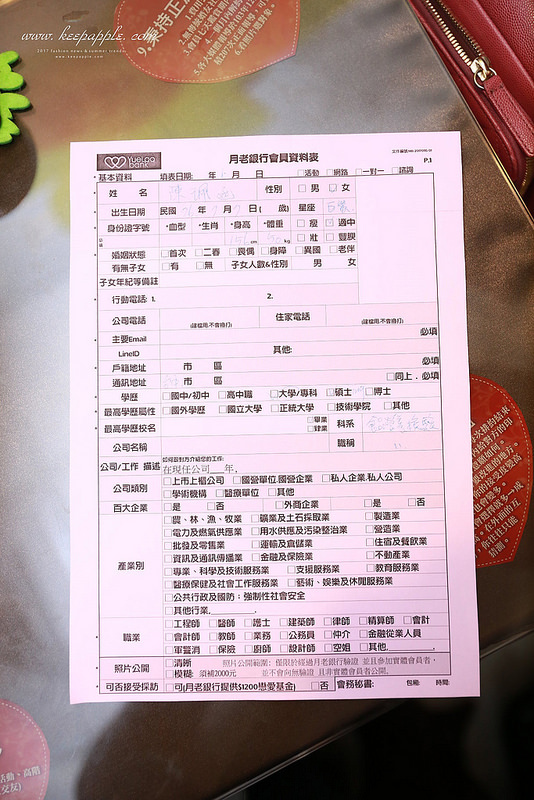 www.keepapple.com
2017 fashion news & summer trends
www.keepapple.com
9.業待正
YueLao bank
月老銀行會員資料表
P.1
基本資料 填表日期: 年 月 日 □活動 □網路 □一對一 □諮詢
姓 名 性別 □男 □女
出生日期 民國 年 月 日( 歲) 星座
身份證字號 *血型 *生肖 *身高 *體重 □瘦 □適中
cm kg □壯 □豐腴
婚姻狀態 □首次 □二春 □喪偶 □身障 □異國 □老伴
有無子女 □有 □無 子女人數&性別 男 女
子女年紀等備註
行動電話: 1. 2.
公司電話 (建檔用.不會撥打) 住家電話 (建檔用.不會撥打)
主要Email 必填
LineID 其他:
戶籍地址 市 區 必填
通訊地址 市 區 □同上.必填
學歷 □國中/初中 □高中職 □大學/專科 □碩士 □博士
最高學歷屬性 □國外學歷 □國立大學 □正統大學 □技術學院 □其他
最高學歷校名 □畢業 □肄業 科系
公司名稱 職稱
公司/工作 描述 如何跟對方介紹您的工作:
在現任公司___年,
公司類別 □上市上櫃公司 □國營單位.國營企業 □私人企業.私人公司
□學術機構 □醫療單位 □其他
百大企業 □是 □否 □外商企業 □是 □否
產業別 □農、林、漁、牧業 □礦業及土石採取業 □製造業
□電力及燃氣供應業 □用水供應及污染整治業 □營造業
□批發及零售業 □運輸及倉儲業 □住宿及餐飲業
□資訊及通訊傳播業 □金融及保險業 □不動產業
□專業、科學及技術服務業 □支援服務業 □教育服務業
□醫療保健及社會工作服務業 □藝術、娛樂及休閒服務業
□公共行政及國防；強制性社會安全
□其他行業,
職業 □工程師 □醫師 □護士 □建築師 □律師 □精算師 □會計
□會計師 □教師 □業務 □公務員 □仲介 □金融從業人員
□軍警消 □保險 □廚師 □設計師 □空姐 □其他.
照片公開 □清晰 照片公開範圍: 僅限於經過月老銀行驗證 並且參加實體會員者,
□模糊: 須補2000元 並不會向無驗證 且非實體會員者公開.
可否接受採訪 □可(月老銀行提供$1200戀愛基金) □否 會務秘書: 包廂: 時間: